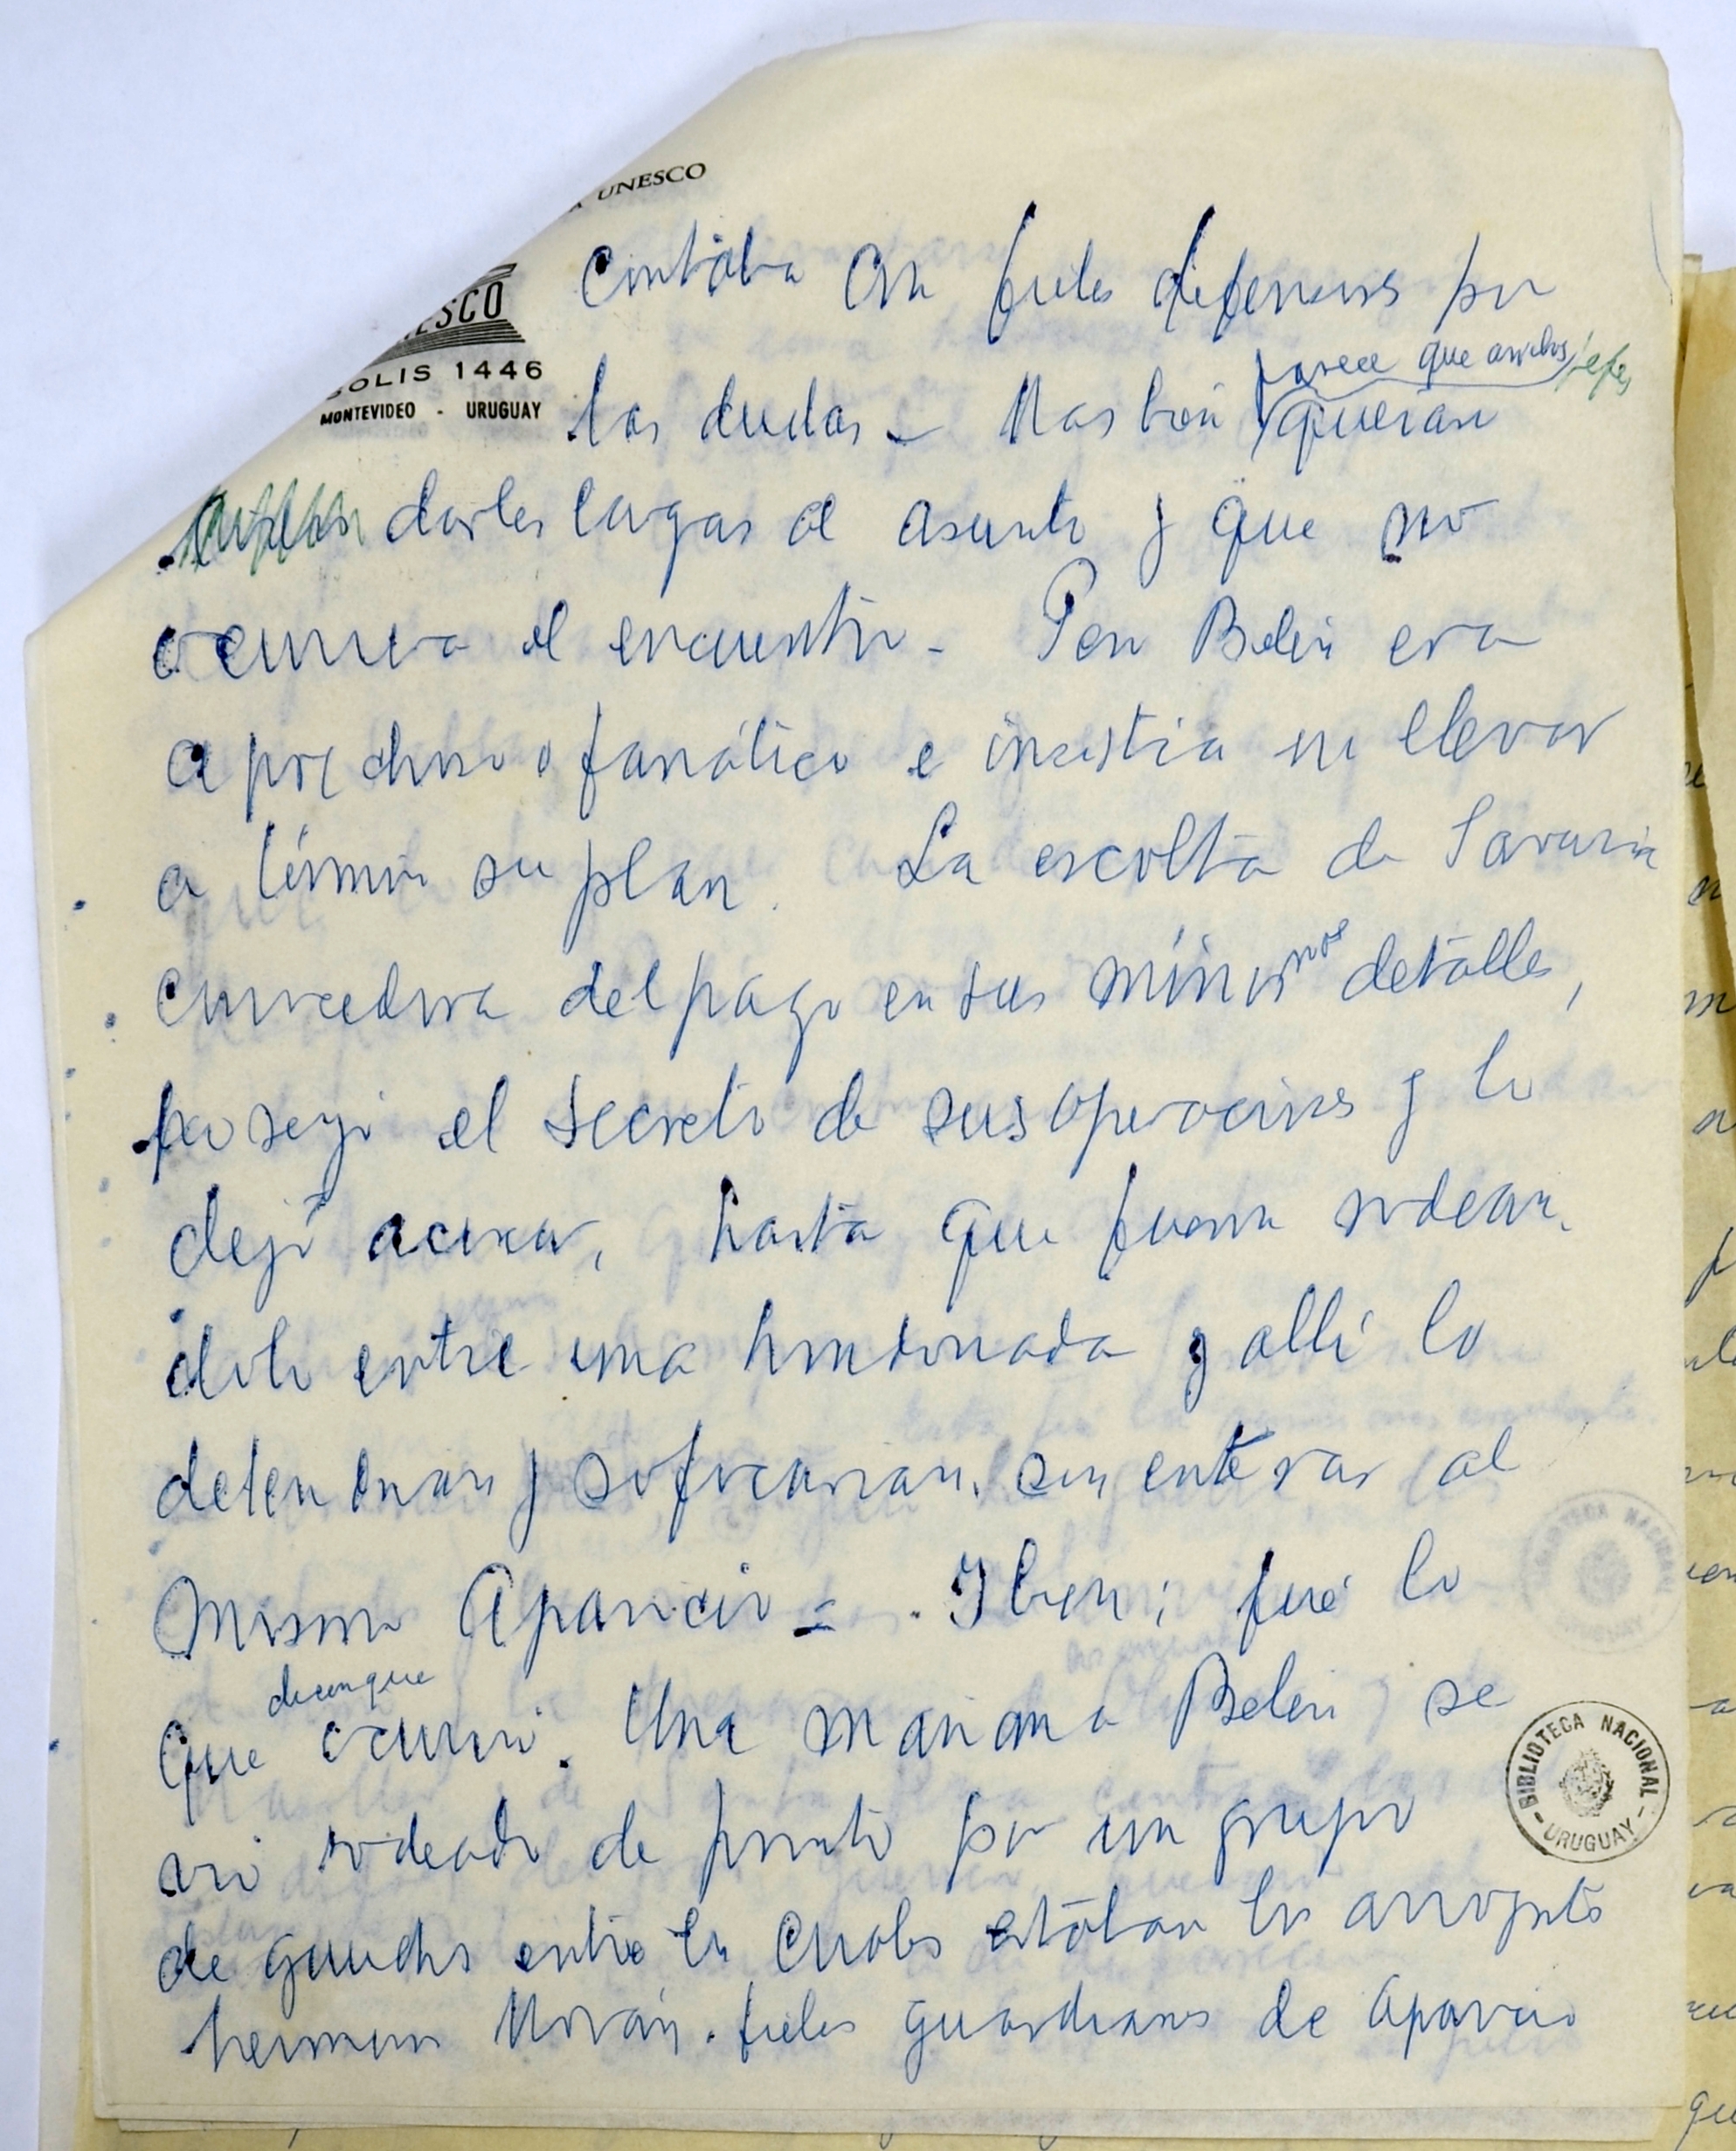 UNESCO
ESCO
SOLIS 1446
MONTEVIDEO - URUGUAY
Contaba con fieles defensores por
parece que ambos jefes
las dudas - Mas bien querían
darles largas al asunto y que no
ocurriera el encuentro - Pero Belén era
apasionado fanático e insistía en llevar
a término su plan. La escolta de Saravia
conocedora del pago en sus mínimos detalles,
poseyó el secreto de sus operaciones y lo
dejó acercar, hasta que fueron rodeán-
dolo entre una hondonada y allí lo
detendrían y sofocarían, sin enterar al
mismo Aparicio - Y bien; fué lo
dicen que
que ocurrió. Una mañana Belén se
vió rodeado de pronto por un grupo
de gauchos entre los cuales estaban los arrogantes
hermanos Morán, fieles guardianes de Aparicio
BIBLIOTECA NACIONAL
- URUGUAY -